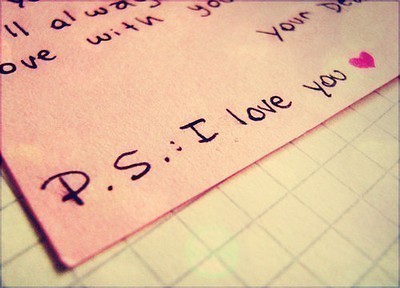 'll always
love with you
Your Dea
P.S.: I love you